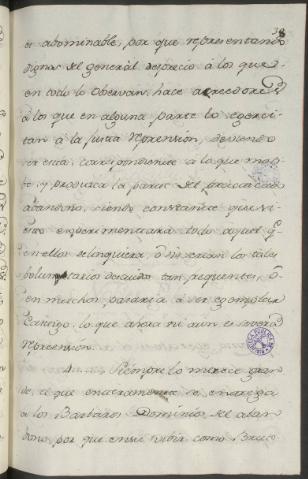 38
es abominable, por que representando
dignos del general desprecio à los que
en todo lo observan, hace acrehedores
à los que en alguna parte lo egerci-
tan à la justa reprension, deviendo
ser esta, correspondiente à lo que
y produzca la parte del
abandono, siendo constante que si
esto experimentara todo aquel q.e
en ellos delinquiera, ò no serian los tales
voluntarios descuidos tan frequentes, ò
en muchos pasaria à ser egemplar
Castigo, lo que ahora ni aun es
reprension.
4. Siempre lo merece gran-
de, el que enteramente se
à los Barbaros Dominios del aban-
dono, por que en si vivir como Bruto